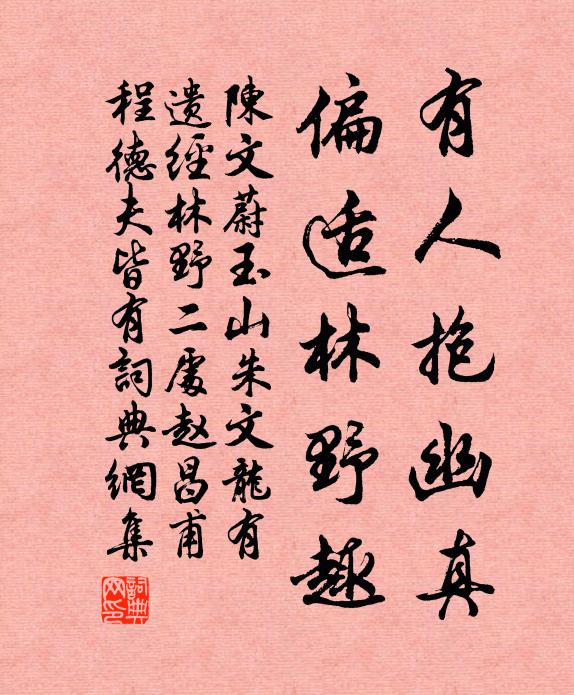 有人抱幽真
偏适林野趣
陳文蔚玉山朱文龍有
遗經林野二處赵昌甫
程德夫皆有詞典網集
詞典網印